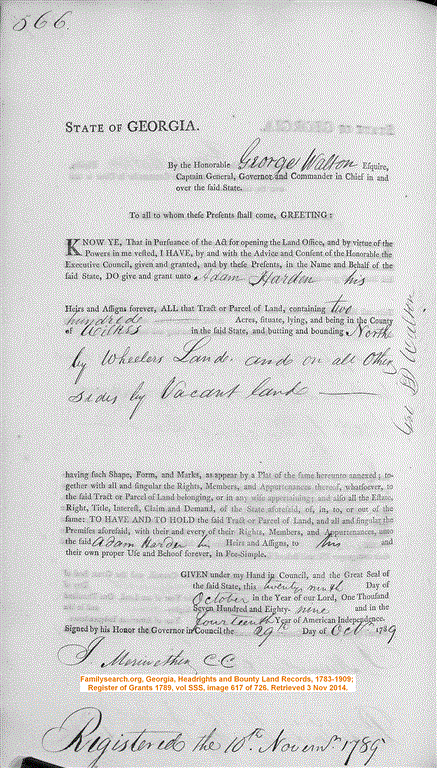 566.
STATE OF GEORGIA.
By the Honorable George Walton Esquire,
Captain General, Governor and Commander in Chief in and
over the said State.
To all to whom these Presents shall come, GREETING:
KNOW YE, That in Pursuance of the Act for opening the Land Office, and by virtue of the
Powers in me vested, I HAVE, by and with the Advice and Consent of the Honorable the
Executive Council, given and granted, and by these Presents, in the Name and Behalf of the
said State, DO give and grant unto Adam Harden his
Heirs and Assigns forever, ALL that Tract or Parcel of Land, containing two
hundred Acres, situate, lying, and being in the County
of Wilkes in the said State, and butting and bounding North
by Wheelers Land and on all other
sides by Vacant land
Geo: Walton
having such Shape, Form, and Marks, as appear by a Plat of the same hereunto annexed; to-
gether with all and singular the Rights, Members, and Appurtenances thereof, whatsoever, to
the said Tract or Parcel of Land belonging, or in any wise appertaining; and also all the Estate,
Right, Title, Interest, Claim and Demand, of the State aforesaid, of, in, to, or out of the
same: TO HAVE AND TO HOLD the said Tract or Parcel of Land, and all and singular the
Premises aforesaid, with their and every of their Rights, Members, and Appurtenances, unto
the said Adam Harden his Heirs and Assigns, to his and
their own proper Use and Behoof forever, in Fee-Simple.
GIVEN under my Hand in Council, and the Great Seal of
the said State, this twenty ninth Day of
October in the Year of our Lord, One Thousand
Seven Hundred and Eighty-nine and in the
fourteenth Year of American Independence.
Signed by his Honor the Governor in Council the 29th Day of Octr. 1789
J Meriwether C C
Familysearch.org, Georgia, Headrights and Bounty Land Records, 1783-1909;
Register of Grants 1789. vol SSS, image 617 of 726. Retrieved 3 Nov 2014.
Registered the 10th. Novemr. 1789